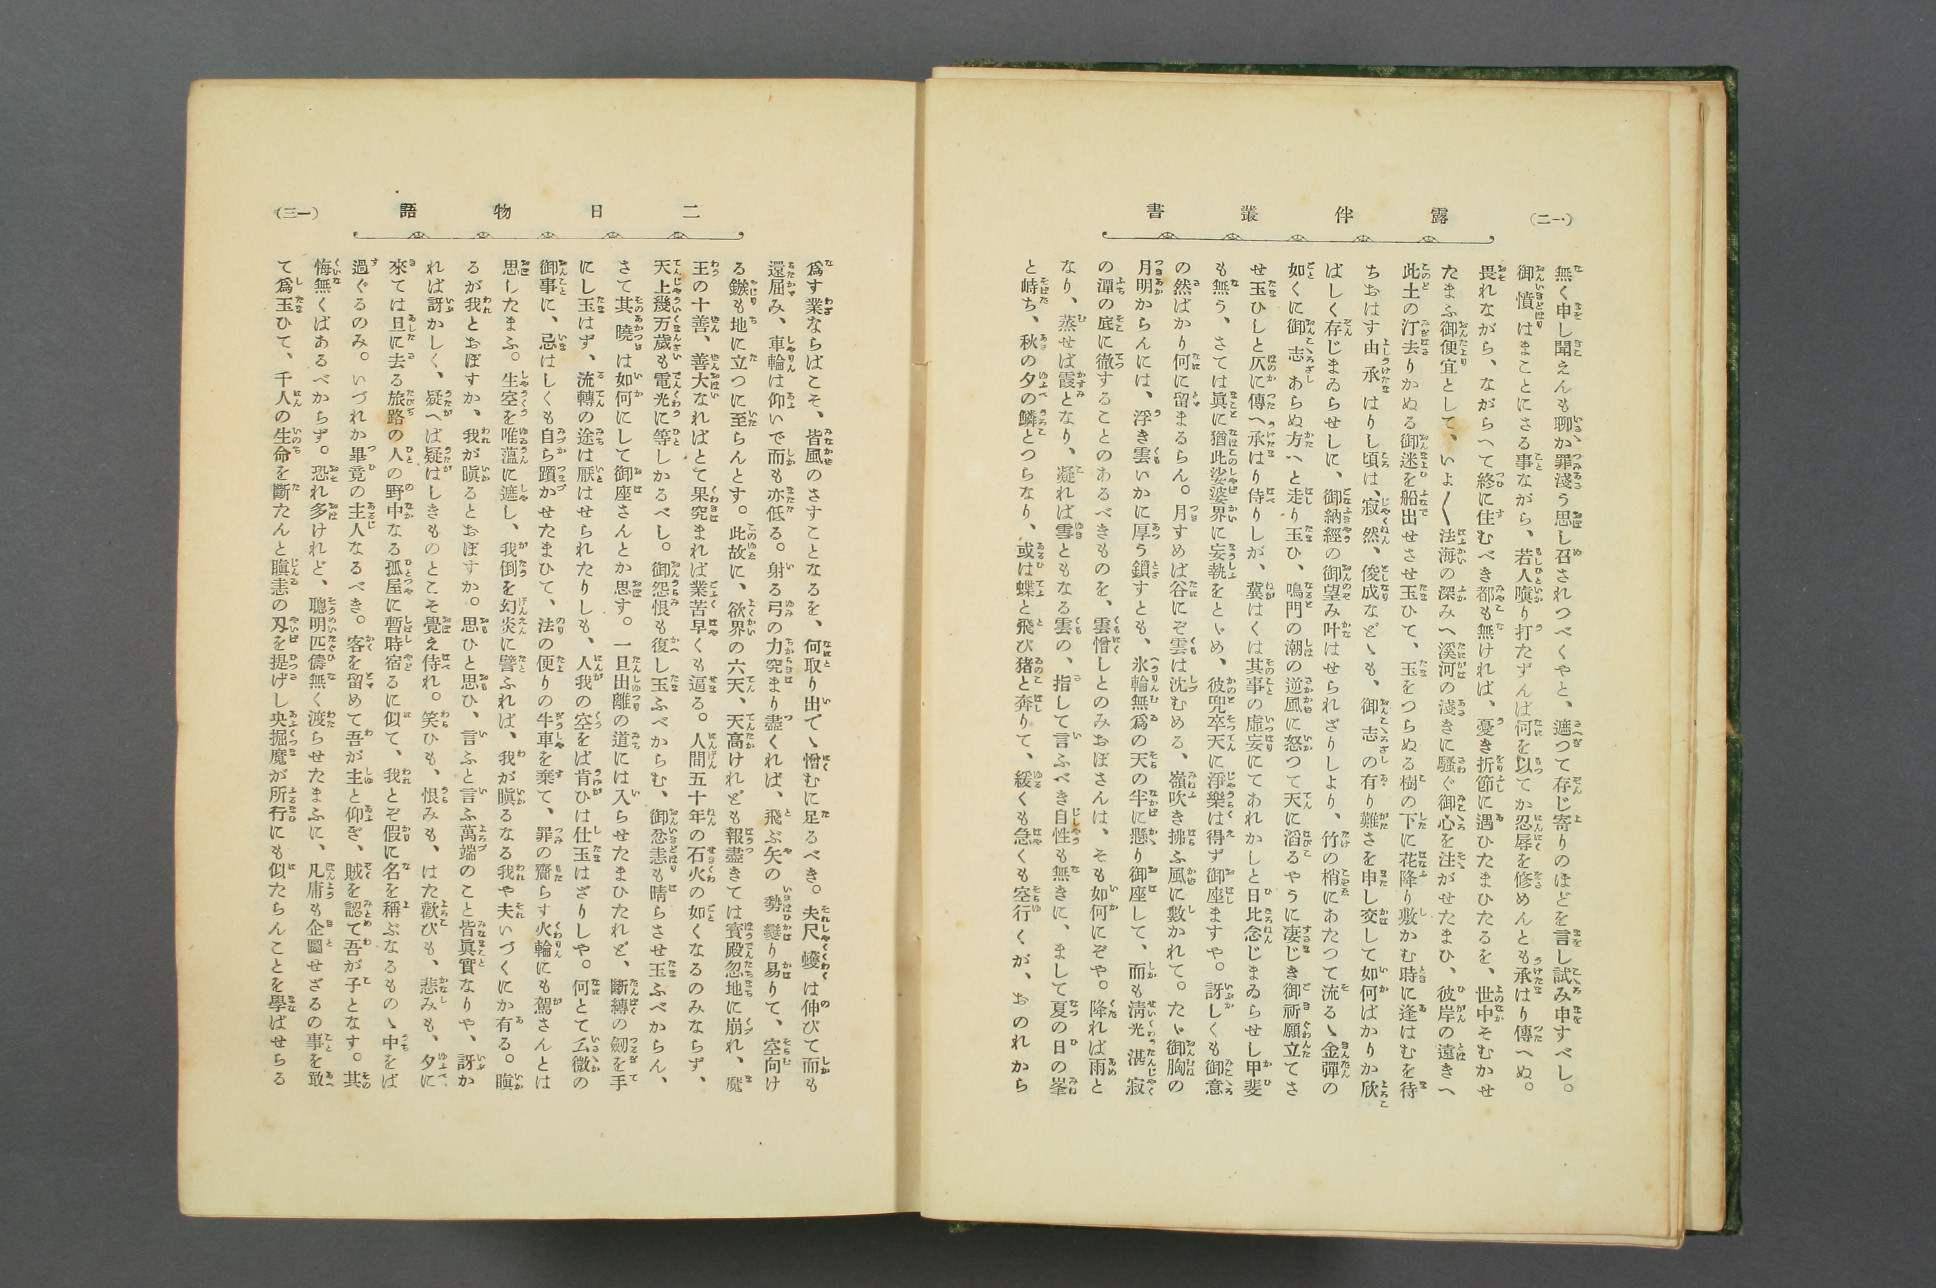 (一二)
露伴叢書
無く申し聞えんも聊か罪淺う思し召されつべくやと、遮つて存じ寄りのほどを言し試み申すべし。
御憤はまことにさる事ながら、若人嗔り打たずんば何を以てか忍辱を修めんとも承はり傳へぬ。
畏れながら、ながらへて終に住むべき都も無ければ、憂き折節に遇ひたまひたるを、世中そむかせ
たまふ御便宜として、いよ〱法海の深みへ溪河の淺きに騷ぐ御心を注がせたまひ、彼岸の遠きへ
此土の汀去りかぬる御迷を船出せさせ玉ひて、玉をつらぬる樹の下に花降り敷かむ時に逢はむを待
ちおはす由承はりし頃は、寂然、俊成などゝも、御志の有り難さを申し交して如何ばかりか欣
ばしく存じまゐらせしに、御納經の御望み叶はせられざりしより、竹の梢にあたつて流るゝ金彈の
如くに御志あらぬ方へと走り玉ひ、鳴門の潮の逆風に怒つて天に滔るやうに凄じき御祈願立てさ
せ玉ひしと仄に傳へ承はり侍りしが、冀はくは其事の虛妄にてあれかしと日比念じまゐらせし甲斐
も無う、さては眞に猶此娑婆界に妄執をとゞめ、彼兜卒天に淨樂は得ず御座ますや。訝しくも御意
の然ばかり何に留まるらん。月すめば谷にぞ雲は沈むめる、嶺吹き拂ふ風に敷かれて。たゞ御胸の
月明からんには、浮き雲いかに厚う鎖すとも、氷輪無爲の天の半に懸り御座して、而も淸光湛寂
の潭の底に徹することのあるべきものを、雲憎しとのみおぼさんは、そも如何にぞや。降れば雨と
なり、蒸せば霞となり、凝れば雪ともなる雲の、指して言ふべき自性も無きに、まして夏の日の峯
と峙ち、秋の夕の鱗とつらなり、或は蝶と飛び猪と奔りて、緩くも急くも空行くが、おのれから
(一三)
二日物語
爲す業ならばこそ、皆風のさすことなるを、何取り出でゝ憎むに足るべき。夫尺蠖は伸びて而も
還屈み、車輪は仰いで而も亦低る。射る弓の力究まり盡くれば、飛ぶ矢の勢變り易りて、空向け
る鏃も地に立つに至らんとす。此故に、欲界の六天、天高けれども報盡きては寶殿忽地に崩れ、魔
王の十善、善大なればとて果究まれば業苦早くも逼る。人間五十年の石火の如くなるのみならず、
天上幾万歲も電光に等しかるべし。御怨恨も復し玉ふべからむ、御忿恚も晴らさせ玉ふべからん、
さて其曉は如何にして御座さんとか思す。一旦出離の道には入らせたまひたれど、斷縛の劔を手
にし玉はず、流轉の途は厭はせられたりしも、人我の空をば肯ひは仕玉はざりしや。何とて幺微の
御事に、忌はしくも自ら躓かせたまひて、法の便りの牛車を棄て、罪の齎らす火輪にも駕さんとは
思したまふ。生空を唯薀に遮し、我倒を幻炎に譬ふれば、我が瞋るなる我や夫いづくにか有る。瞋
るが我とおぼすか、我が瞋るとおぼすか。思ひと思ひ、言ふと言ふ萬端のこと皆眞實なりや、訝か
れば訝かしく、疑へば疑はしきものとこそ覺え侍れ。笑ひも、恨みも、はた歡びも、悲みも、夕に
來ては旦に去る旅路の人の野中なる孤屋に暫時宿るに似て、我とぞ假に名を稱ぶなるものゝ中をば
過ぐるのみ。いづれか畢竟の主人なるべき。客を留めて吾が主と仰ぎ、賊を認て吾が子となす。其
悔無くばあるべからず。恐れ多けれど、聰明匹儔無く渡らせたまふに、凡庸も企圖せざるの事を敢
て爲玉ひて、千人の生命を斷たんと瞋恚の刄を提げし央掘魔が所行にも似たらんことを學ばせらる